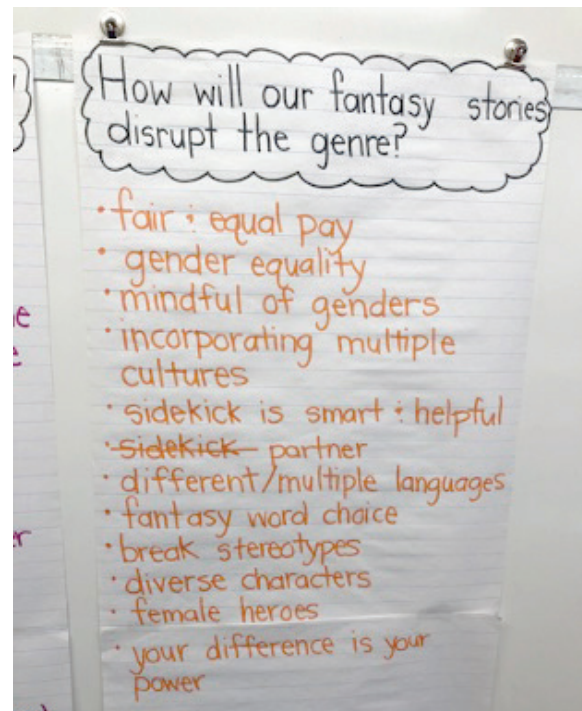 How will our fantasy stories
disrupt the genre?
• fair & equal pay
• gender equality
• mindful of genders
• incorporating multiple
cultures
• sidekick is smart & helpful
• sidekick partner
• different/multiple languages
• fantasy word choice
• break stereotypes
• diverse characters
• female heroes
• your difference is your
power